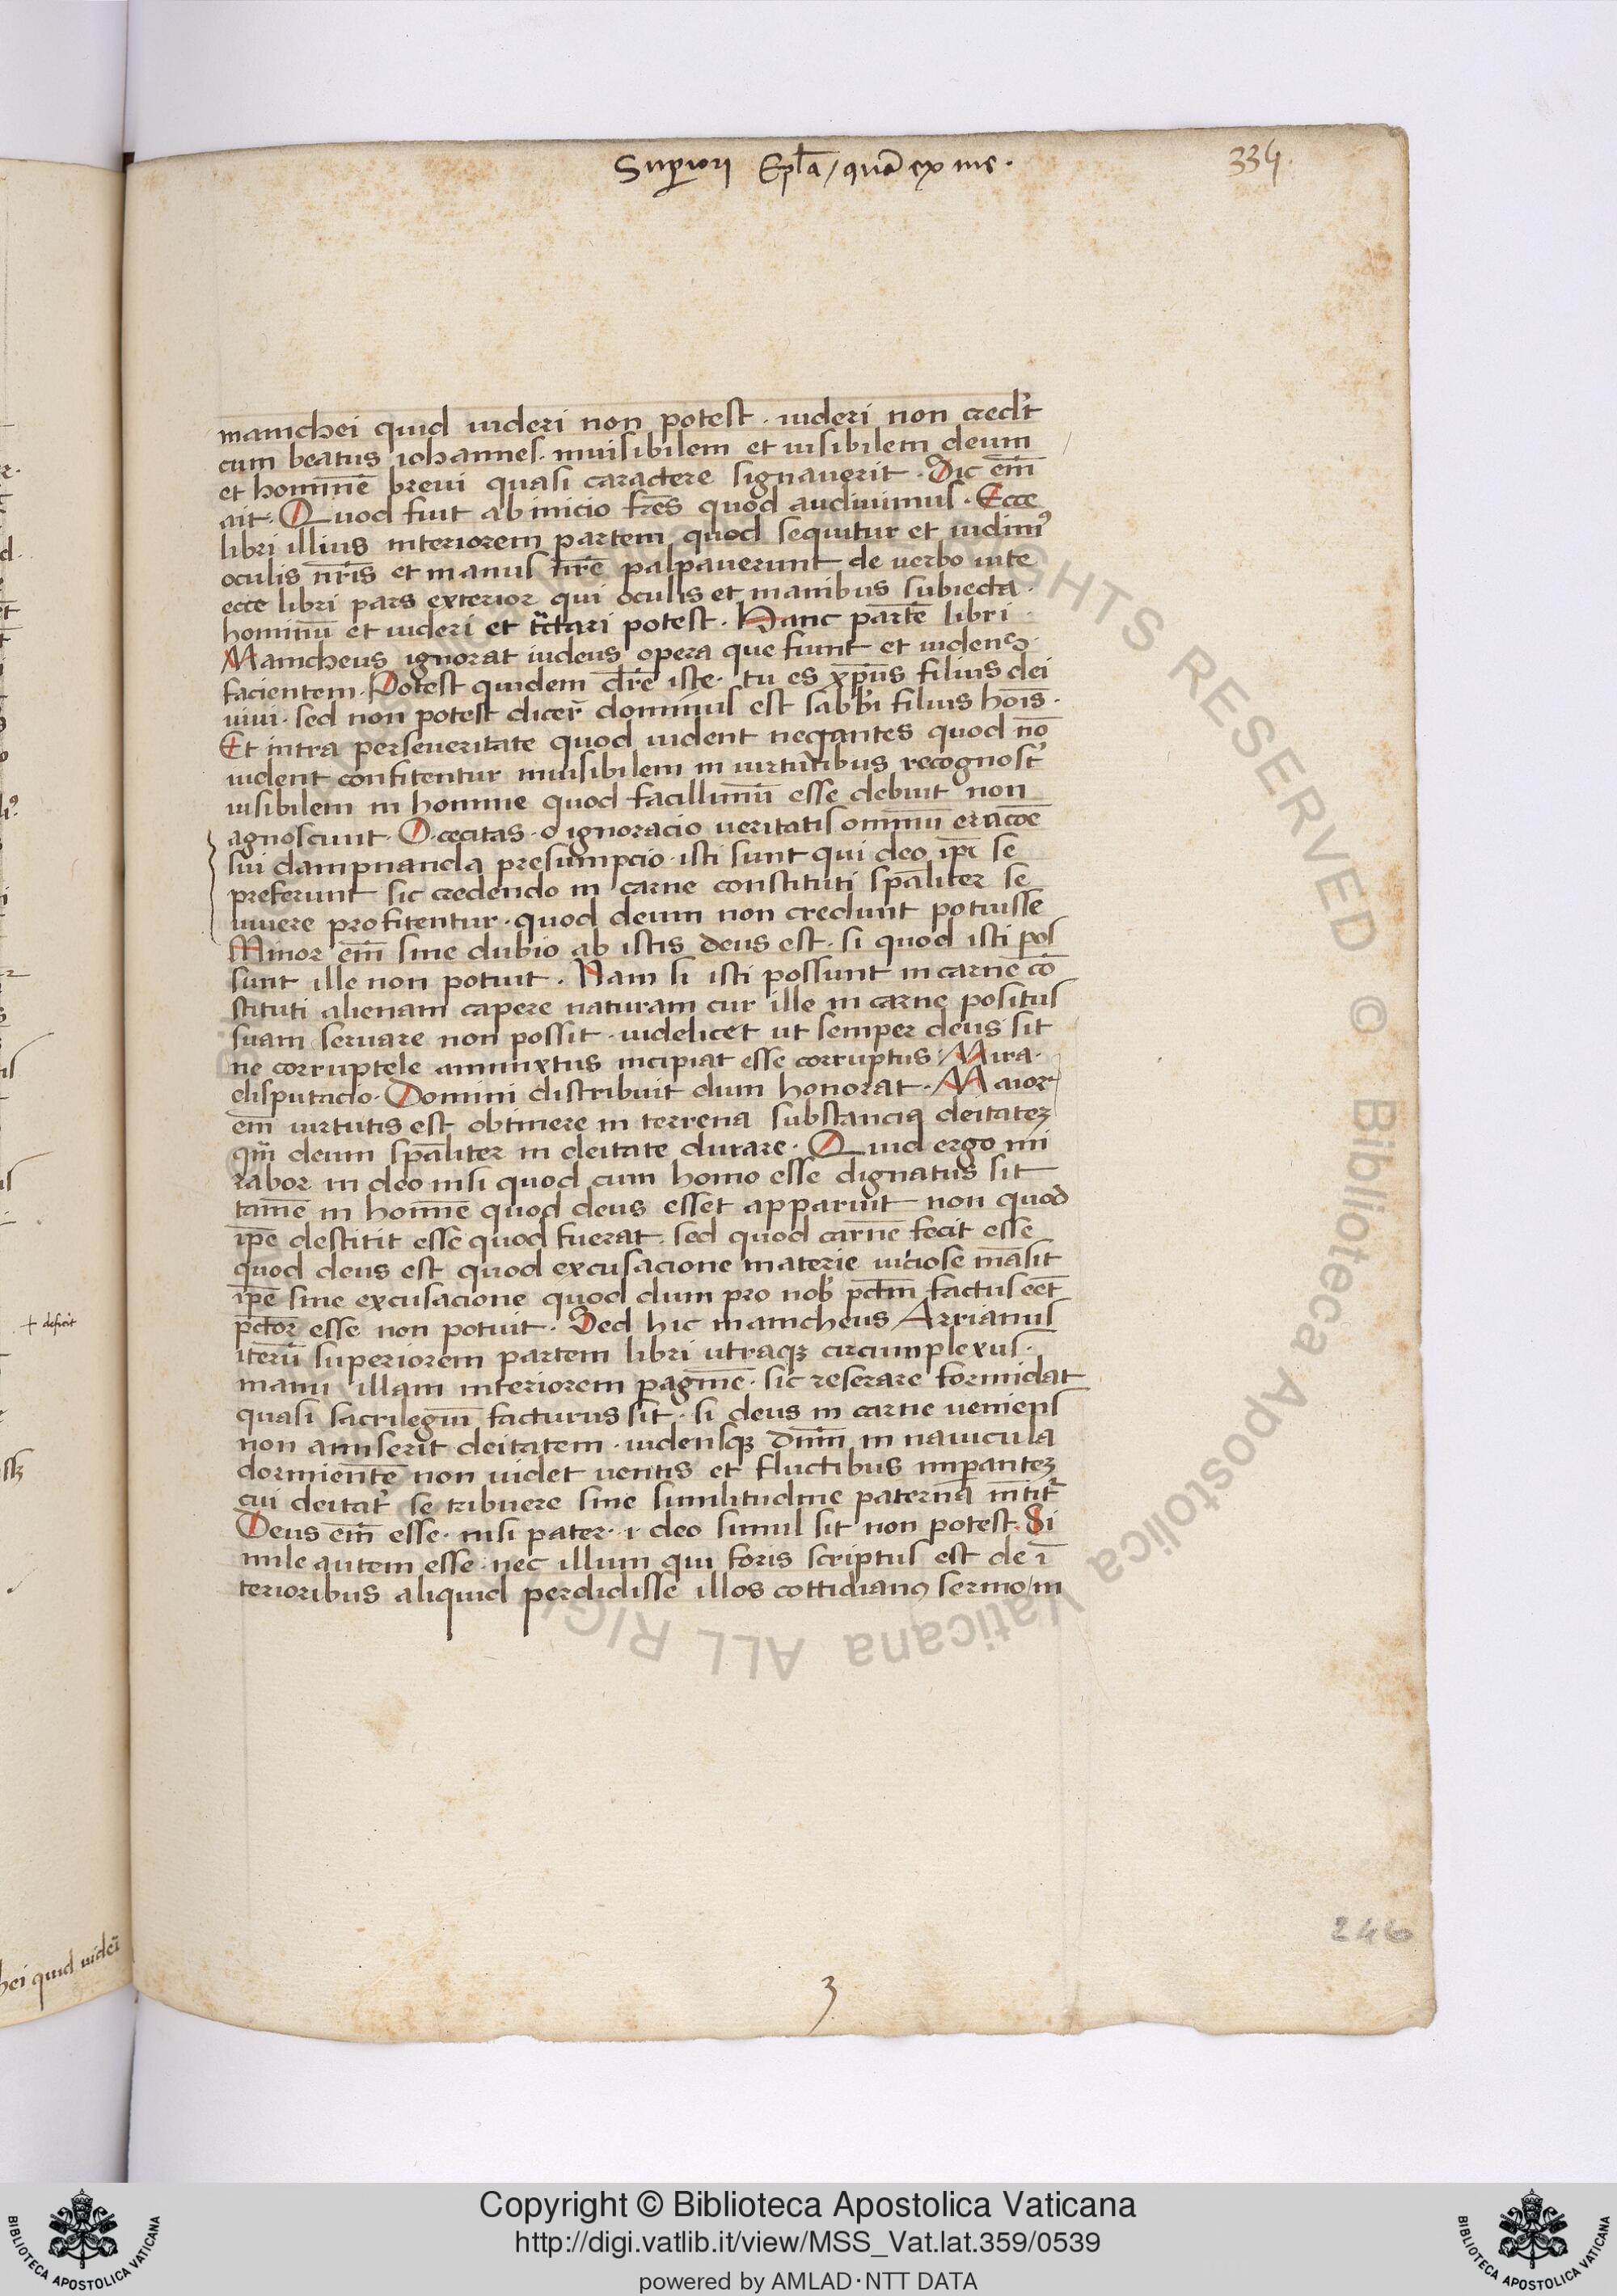 Superiori Epl̄a / quā ex me.
334.
manichei quid uideri non potest · uideri non credīt
cum beatus iohannes · inuisibilem et uisibilem deum
et hominē breui quasi caractere signauerit · Sic em̄
ait · Quod fuit ab inicio fr̄es quod audiuimus · Ecce
libri illius interiorem partem quod sequitur et uidimꝰ
oculis nr̄is et manus nr̄e palpauerunt de uerbo uite
ecce libri pars exterior qui oculis et manibus subiecta ·
hominū et uideri et tc̄tari potest · Hanc partē libri
Manicheus ignorat iudeus opera que fiunt et uident
facientem · Potest quidem dr̄e iste · tu es xp̄us filius dei
uiui · sed non potest dicer̄ dominus est sabb̄i filius hōis ·
Et intra perseueritate quod uident negantes quod nō
uident confitentur inuisibilem in uirtutibus recognosc̄
uisibilem in homine quod facillimū esse debuit non
agnoscunt · O cecitas · o ignoracio ueritatis omniū eracōe
sui dampnanda presumpcio · isti sunt qui deo ip̄i se
preferunt sic credendo in carne constituti sp̄aliter se
uiuere profitentur · quod deum non credunt potuisse
Minor em̄ sine dubio ab istis deus est · si quod isti pos
sunt ille non potuit · Nam si isti possunt in carne cō
stituti alienam capere naturam cur ille in carne positus
suam seruare non possit · uidelicet ut semper deus sit
ne corruptele ammixtus incipiat esse corruptus · Mira ·
disputacio · Domini distribuit dum honorat · Maior
em̄ uirtutis est obtinere in terrena substancia deitateꝫ
qm̄ deum sp̄aliter in deitate durare · Quid ergo mi
rabor in deo nisi quod cum homo esse dignatus sit
tamē in homīe quod deus esset apparuit non quod
ip̄e destitit esse quod fuerat · sed quod carnē fecit esse
quod deus est quod excusacione materie uiciose māsit
ip̄e sine excusacione quod dum pro nob̄ pctm̄ factus eēt
pctor̄ esse non potuit · Sed hic manicheus Arrianus
iterū superiorem partem libri utraqꝫ circumplexus ·
manu illam interiorem paginē · sic reserare formidat
quasi sacrilegiū facturus sit · si deus in carne ueniens
non amiserit deitatem · uidensqꝫ dn̄m in nauicula
dormientē non uidet uentis et fluctibus imperanteꝫ
cui deitat̄ se tribuere sine similitudine paterna nitit̄
Deus em̄ esse · nisi pater · i deo simul sit non potest · Si
mile autem esse nec illum qui foris scriptus est de ī
terioribus aliquid perdidisse illos cottidianꝰ sermo / in
3
246
+ deficit
hei quid uideī
Copyright © Biblioteca Apostolica Vaticana
http://digi.vatlib.it/view/MSS_Vat.lat.359/0539
powered by AMLAD·NTT DATA
BIBLIOTECA APOSTOLICA VATICANA
BIBLIOTECA APOSTOLICA VATICANA